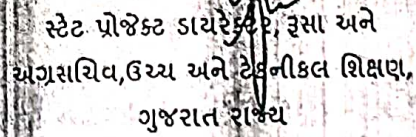 સ્ટેટ પ્રોજેક્ટ ડાયરેક્ટર, રૂસા અને
અગ્રસચિવ,ઉચ્ચ અને ટેકનીકલ શિક્ષણ,
ગુજરાત રાજ્ય